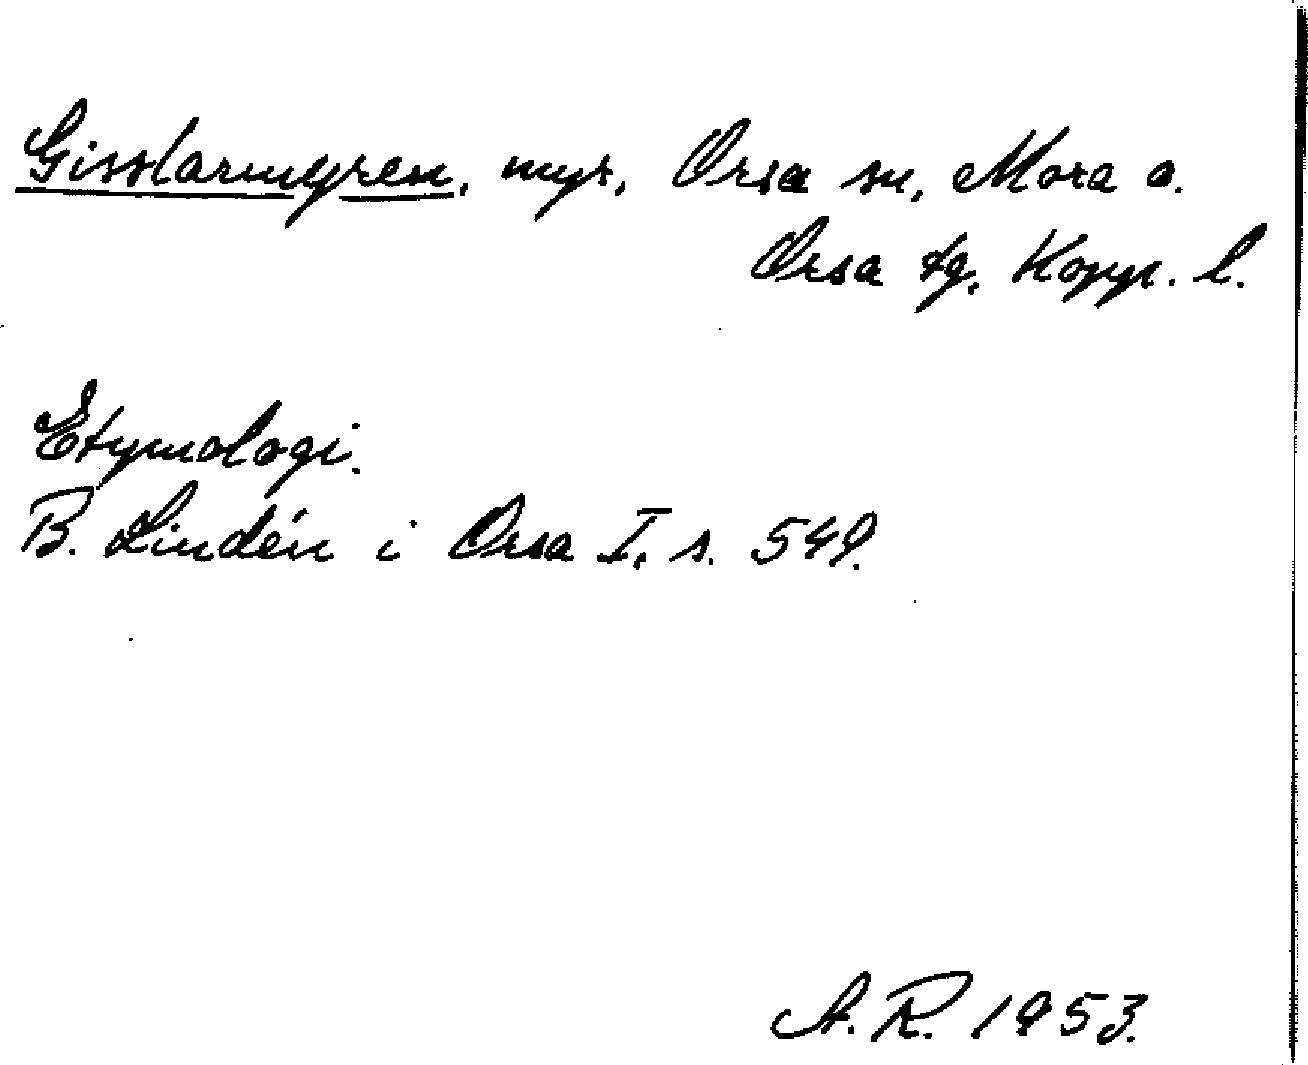 Gisslarmyren, myr, Orsa sn, Mora o.
Orsa tg, Kopp. l.
Etymologi.
B. Lindén i Orsa I, s. 549.
A. R. 1953.